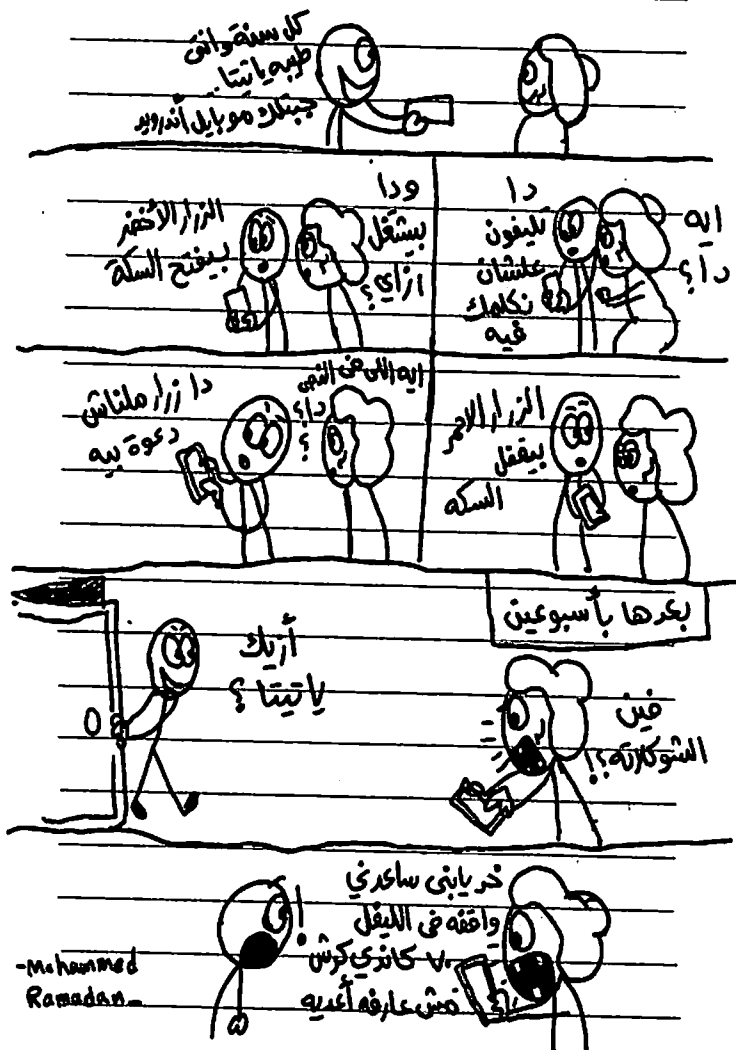 كل سنة وانتى
طيبه يا تيتا..
جبتلك موبايل أندرويد
ايه
دا؟
دا
تليفون
علشان
نكلمك
فيه
ودا
بيشتغل
ازاي؟
الزرار الأخضر
بيفتح السكة
الزرار الاحمر
بيقفل
السكه
ايه اللى فى النص
دا؟
؟
دا زرار ملناش
دعوة بيه
بعدها بأسبوعين
أزيك
يا تيتا؟
فين
الشوكلاته؟!
خد يابنى ساعدني
واقفه فى الليفل
٧٠ كاندي كرش
مش عارفه أعديه
!
-Mohammed
Ramadan-